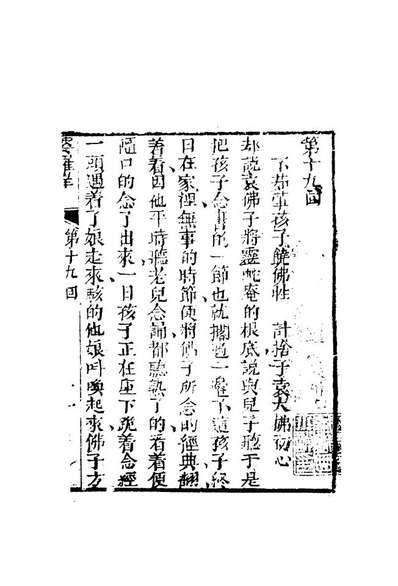 第十九回
孩子饒佛牲 計捨子袁大佛初心
却說袁佛子將靈蛇庵的根底說與兒子聽于是
把孩子念書的一節也就擱過一邊不題孩子終
日在家裡無事的時節便將佛子所念的經典翻
着看因他平時聽老兒念誦都聽熟了的看着便
隨口的念了出來一日孩子正在座下跪着念經
一頭遇着了娘走來駭的他娘叫喚起來佛子方
第十九回